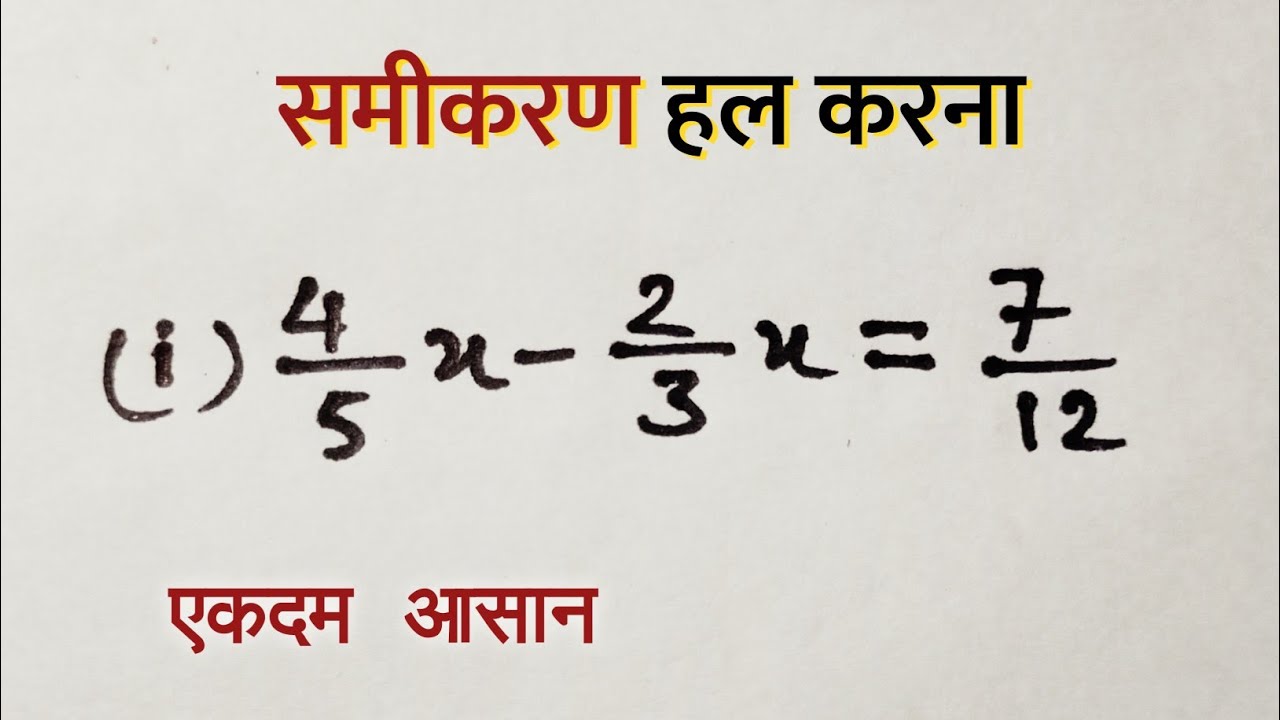 समीकरण हल करना
(i) 4/5 x - 2/3 x = 7/12
एकदम आसान